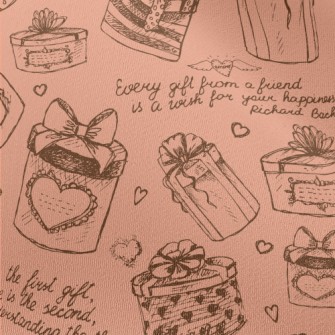 Every gift from a friend
is a wish for your happiness
Richard Bach
the first gift,
is the second,
understanding the